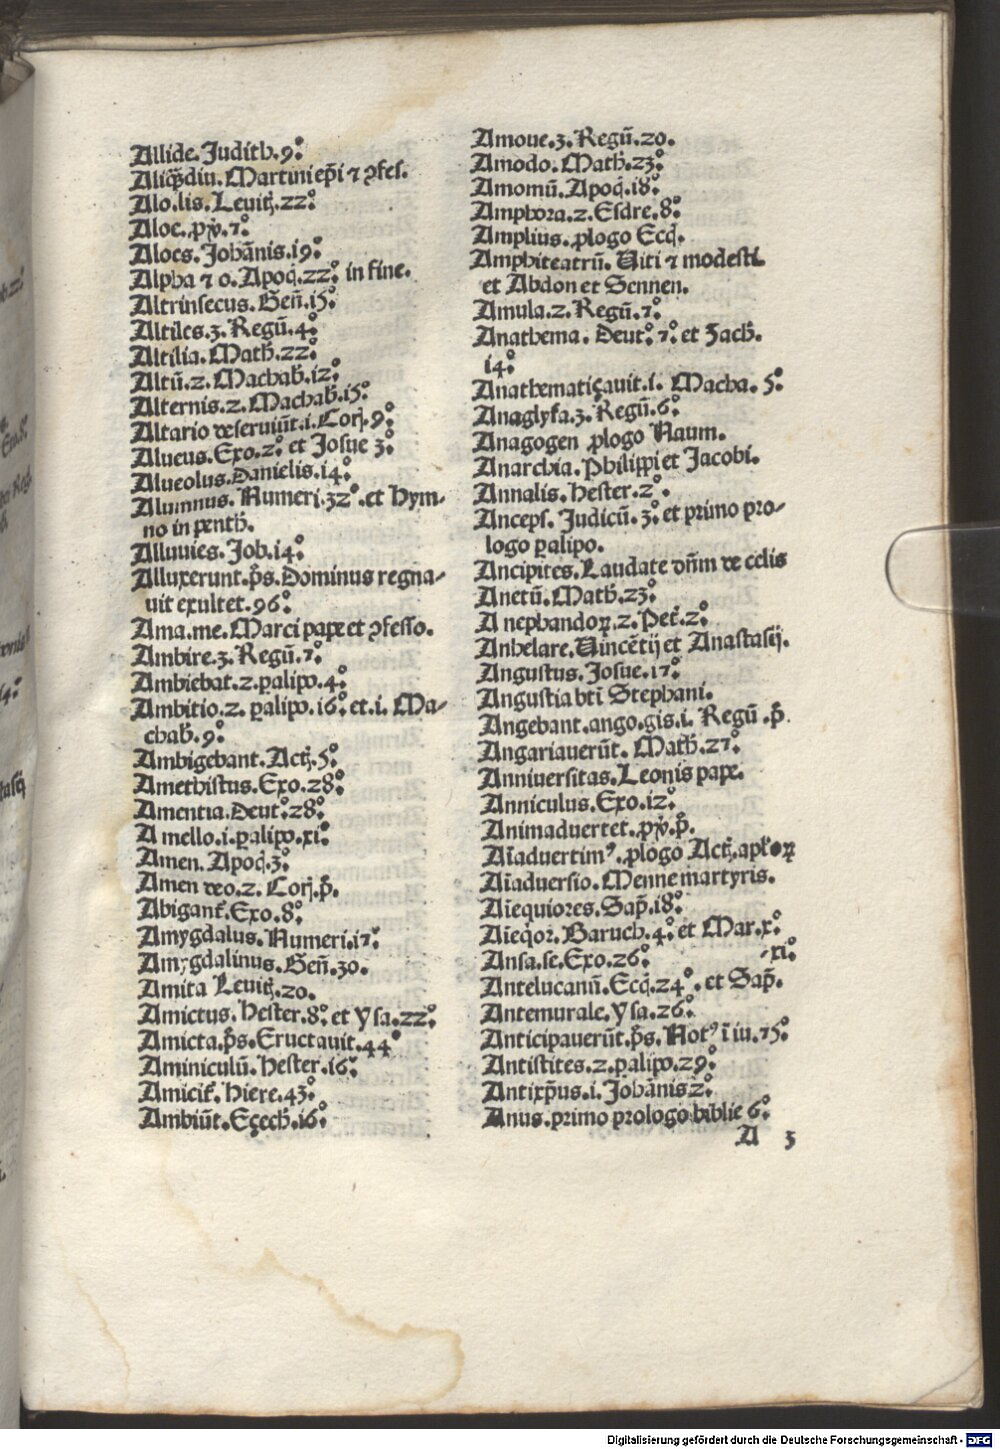 Allide. Judith. 9°.
Aliq̃diu. Martini ep̄i ⁊ ꝯfes.
Alo. lis. Leuit̉. 22°.
Aloe. pͥv. 7°.
Aloes. Johānis. 19°.
Alpha ⁊ o. Apoq̉. 22°. in fine.
Altrinsecus. Geñ. 15°.
Altiles. 3. Regū. 4°.
Altilia. Math̉. 22°.
Altū. 2. Machab̉. 12°.
Alternis. 2. Machab̉. 15°.
Altario deseruiūt. i. Corī. 9°.
Alueus. Exo. 2°. et Josue 3°.
Alueolus. Danielis. 14°.
Alumnus. Numeri. 32°. et hym-
no in penth̉.
Alluuies. Job. 14°.
Alluxerunt. p̄s. Dominus regna-
uit exultet. 96°.
Ama. me. Marci pape et ꝯfesso.
Ambire. 3. Regū. 7°.
Ambiebat. 2. ꝑalipo. 4°.
Ambitio. 2. ꝑalipo. 16°. et. i. Ma-
chab̉. 9°.
Ambigebant. Act̉. 5°.
Amethistus. Exo. 28°.
Amentia. Deut°. 28°.
A mello. i. ꝑalipo. xi°.
Amen. Apoq̉. 3°.
Amen deo. 2. Corī. p̄.
Abigant̉. Exo. 8°.
Amygdalus. Numeri. 17°.
Amygdalinus. Geñ. 30.
Amita Leuit̉. 20.
Amictus. Hester. 8°. et Ysa. 22°.
Amicta. p̄s. Eructauit. 44°
Aminiculū. Hester. 16°.
Amicit̉. Hiere. 43°.
Ambiūt. Eçech̉. 16°.
Amoue. 3. Regū. 20.
Amodo. Math̉. 23°.
Amomū. Apoq̉. 18°.
Amphora. 2. Esdre. 8°.
Amplius. ꝓlogo Ecq̉.
Amphiteatrū. Uiti ⁊ modesti.
et Abdon et Sennen.
Amula. 2. Regū. 7°.
Anathema. Deut°. 7°. et Zach̉.
14°.
Anathematiçauit. i. Macha. 5°.
Anaglyfa. 3. Regū. 6°.
Anagogen ꝓlogo Naum.
Anarchia. Philippi et Jacobi.
Annalis. Hester. 2°.
Anceps. Judicū. 3°. et primo pro-
logo ꝑalipo.
Ancipites. Laudate dn̄m de celis
Anetū. Math̉. 23°.
A nephandoꝝ. 2. Pet̉. 2°.
Anhelare. Uincētij et Anastasij.
Angustus. Josue. 17°.
Angustia bti̅ Stephani.
Angebant. ango. gis. i. Regū. p̄.
Angariauerūt. Math̉. 27°.
Anniuersitas. Leonis pape.
Anniculus. Exo. 12°.
Animaduertet. pͥv. p̄.
Aīaduertimꝰ. ꝓlogo Act̉. apl̉oꝝ
Aīaduersio. Menne martyris.
Aīequiores. Sap̄. 18°.
Aīeqͦor. Baruch. 4°. et Mar. x°.
Ansa. se. Exo. 26°. xi°.
Antelucanū. Ecq̉. 24°. et Sap̄.
Antemurale. Ysa. 26°.
Anticipauerūt. p̄s. Notꝰ ī iu. 75°.
Antistites. 2. ꝑalipo. 29°.
Antixp̄us. i. Johānis 2°.
Anus. primo prologo biblie 6°.
A 3
Digitalisierung gefördert durch die Deutsche Forschungsgemeinschaft - DFG